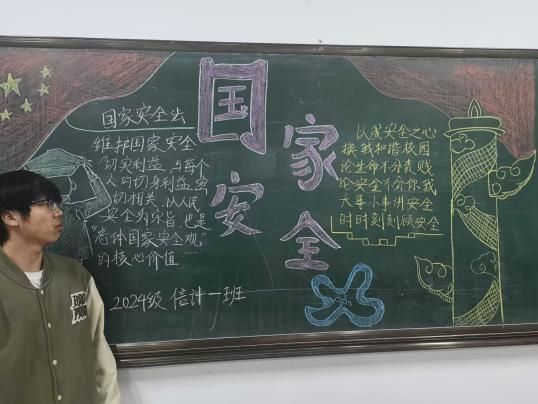 国家安全
国家安全法
维护国家安全
切实利益，与每个
人的切身利益密
切相关，以人民
安全为宗旨，也是
“总体国家安全观”
的核心价值
2024级 信计一班
以我安全之心
换我和谐校园
论生命不分贵贱
论安全不分你我
大事小事讲安全
时时刻刻顾安全